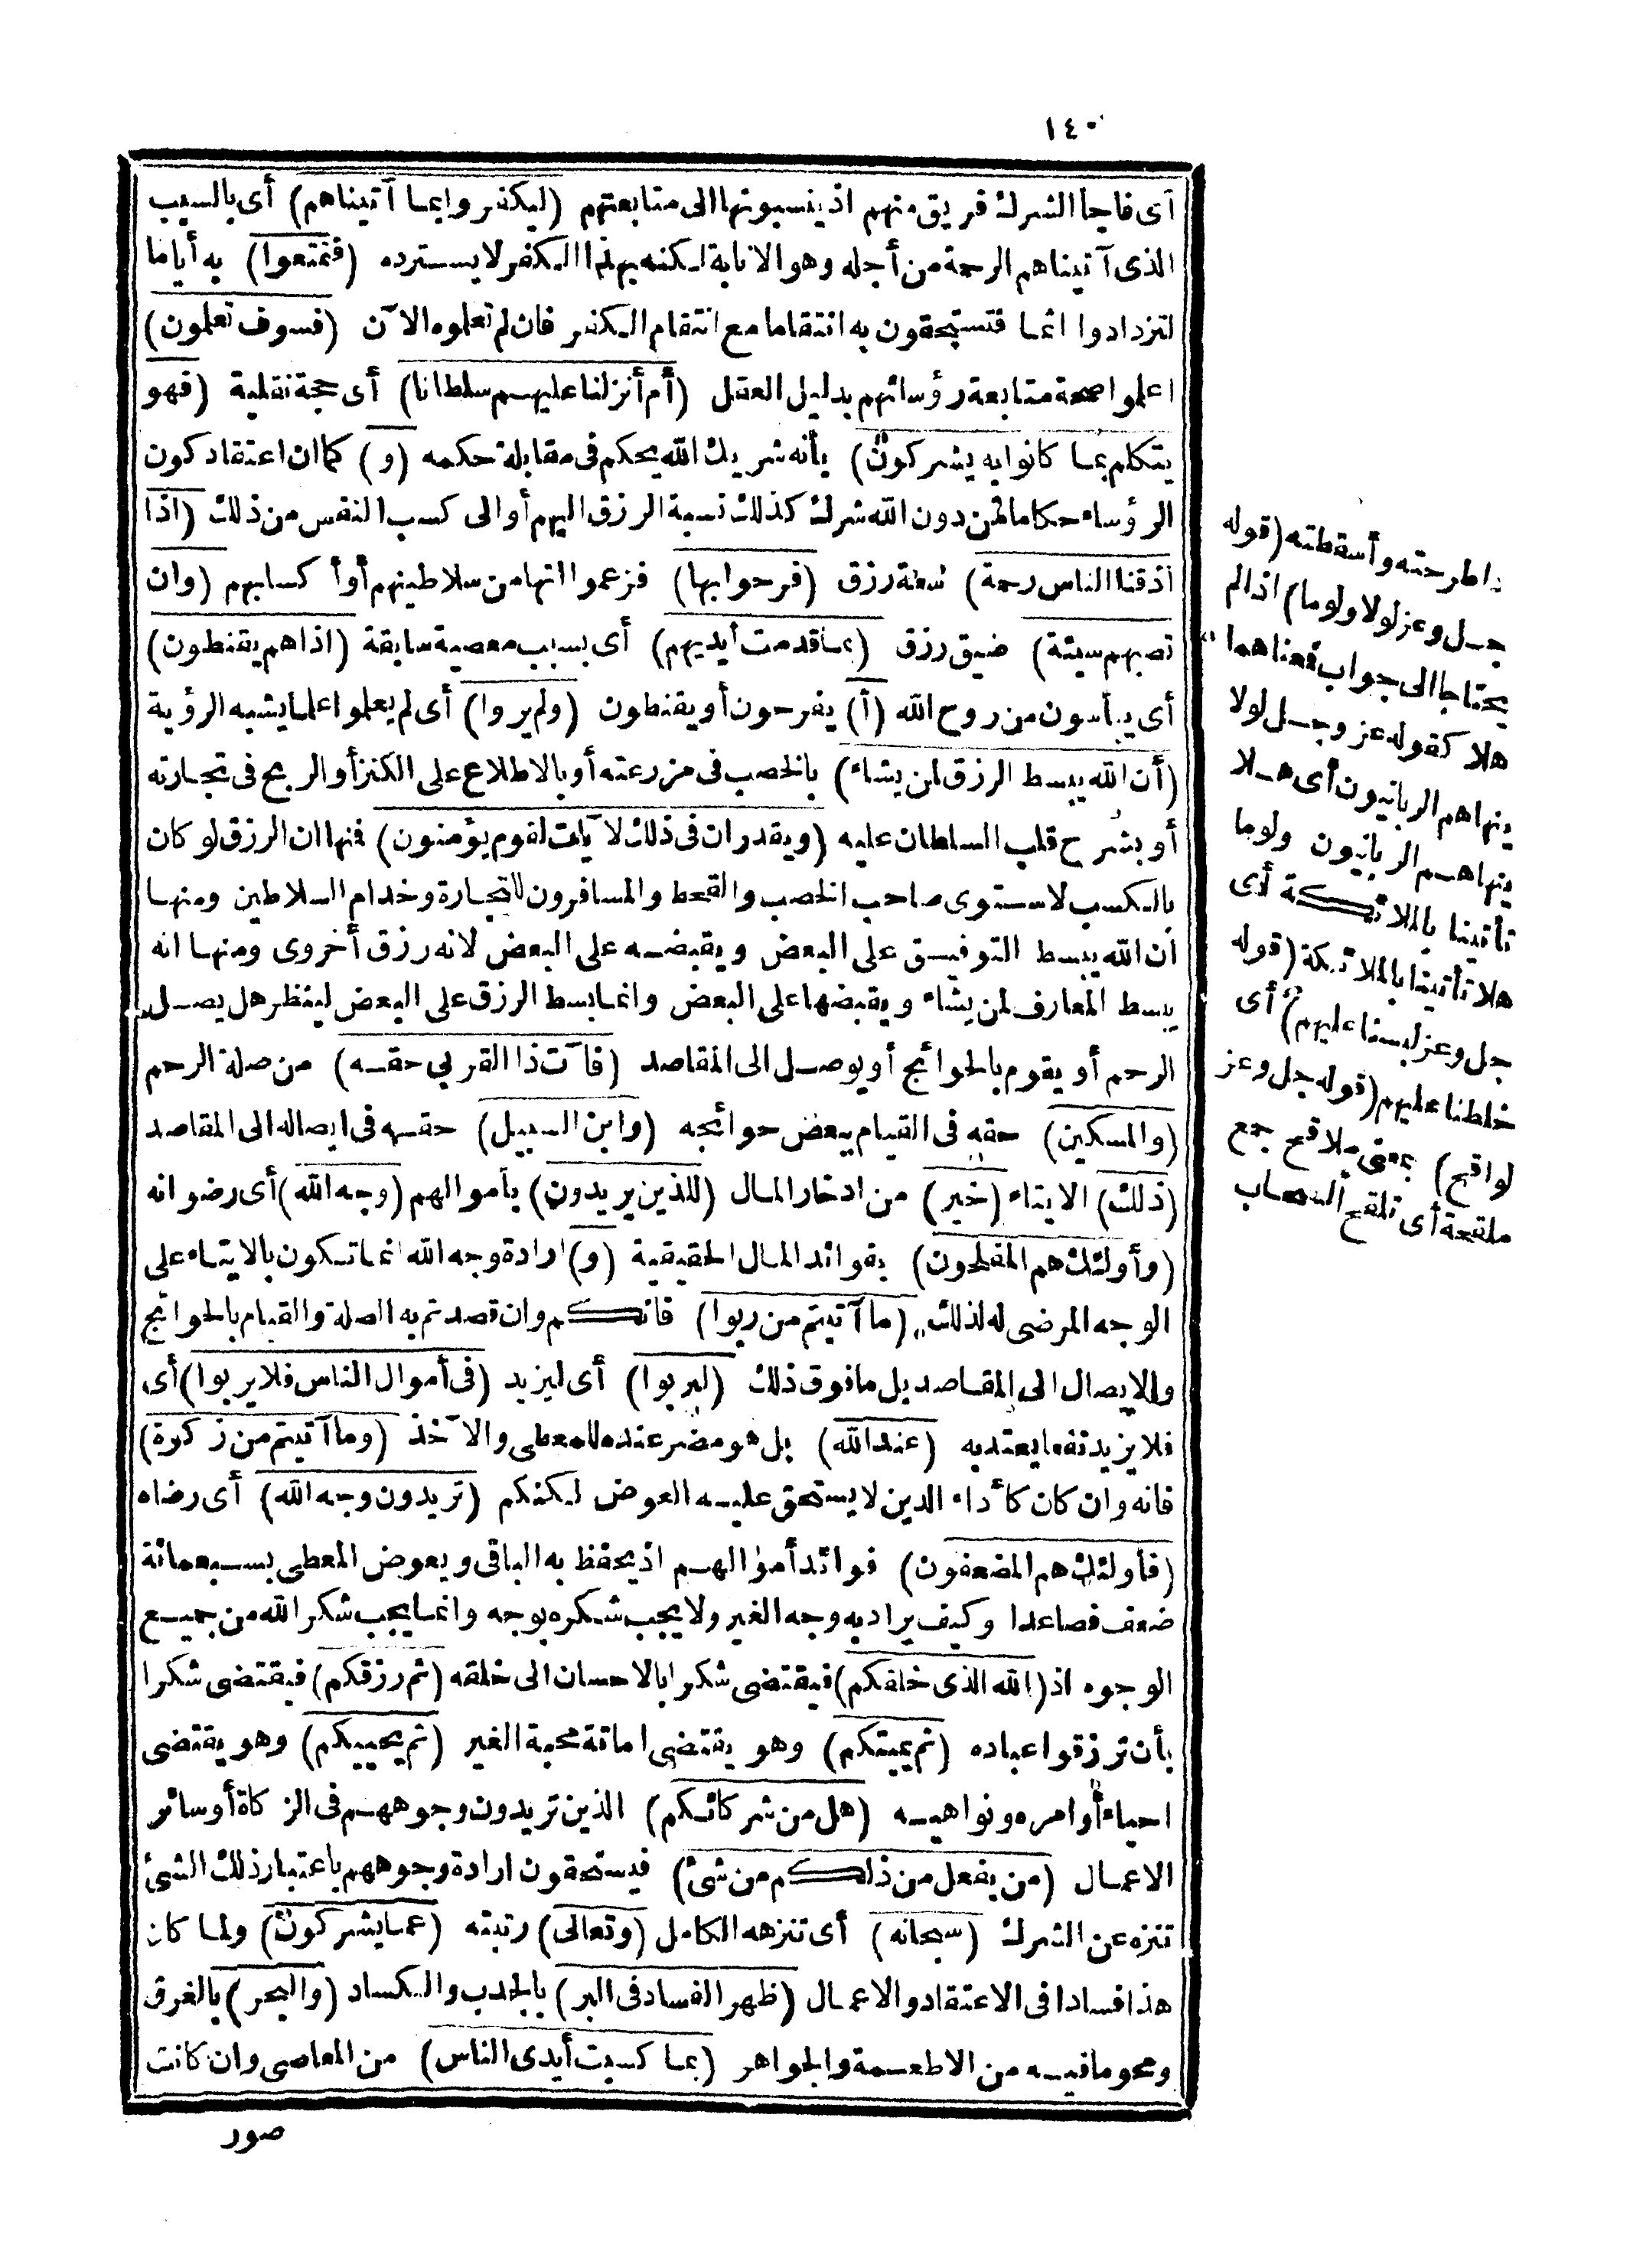 ١٤٠
أى فاجأ الشرك فريق منهم اذ ينسبونها الى متابعتهم (ليكفروا بما آتيناهم) أى بالسبب
الذى آتيناهم الرحمة من أجله وهو الانابة لكنه بهذا الكفر لا يسترده (فتمتعوا) به أياما
لتزدادوا اثما فتستحقون به انتقاما مع انتقام الكفر فان لم تعلموه الآن (فسوف تعلمون)
اعلموا صحة متابعة رؤسائهم بدليل العقل (أم أنزلنا عليهم سلطانا) أى حجة نقلية (فهو
يتكلم بما كانوا به يشركون) بأنه شريك الله يحكم فى مقابلة حكمه (و) كما ان اعتقاد كون
الرؤساء حكاما لمن دون الله شرك كذلك نسبة الرزق اليهم أو الى كسب النفس من ذلك (اذا
أذقنا الناس رحمة) سعة رزق (فرحوا بها) فزعموا انها من سلاطينهم أو أكسابهم (وان
تصبهم سيئة) ضيق رزق (بما قدمت أيديهم) أى بسبب معصية سابقة (اذا هم يقنطون)
أى ييأسون من روح الله (أ) يفرحون أو يقنطون (ولم يروا) أى لم يعلموا علما يشبه الرؤية
(أن الله يبسط الرزق لمن يشاء) بالخصب فى مزرعته أو بالاطلاع على الكنز أو الربح فى تجارته
أو بشرح قلب السلطان عليه (ويقدر ان فى ذلك لآيات لقوم يؤمنون) فمنها ان الرزق لو كان
بالكسب لاستوى صاحب الخصب والقحط والمسافرون للتجارة وخدام السلاطين ومنها
أن الله يبسط التوفيق على البعض ويقبضه على البعض لانه رزق أخروى ومنها انه
يبسط المعارف لمن يشاء ويقبضها على البعض وانما بسط الرزق على البعض لينظر هل يصل
الرحم أو يقوم بالحوائج أو يوصل الى المقاصد (فآت ذا القربى حقه) من صلة الرحم
(والمسكين) حقه فى القيام ببعض حوائجه (وابن السبيل) حقه فى ايصاله الى المقاصد
(ذلك) الايتاء (خير) من ادخار المال (للذين يريدون) بأموالهم (وجه الله) أى رضوانه
(وأولئك هم المفلحون) بفوائد المال الحقيقية (و) ارادة وجه الله انما تكون بالايتاء على
الوجه المرضى له لذلك (ما آتيتم من ربوا) فانكم وان قصدتم به الصلة والقيام بالحوائج
والايصال الى المقاصد بل ما فوق ذلك (ليربوا) أى ليزيد (فى أموال الناس فلا يربوا) أى
فلا يزيد نفعا يعتد به (عند الله) بل هو مضر عنده للمعطى والآخذ (وما آتيتم من زكوة)
فانه وان كان كأداء الدين لا يستحق عليه العوض لكنكم (تريدون وجه الله) أى رضاه
(فأولئك هم المضعفون) فوائد أموالهم اذ يحفظ به الباقى ويعوض المعطى بسبعمائة
ضعف فصاعدا وكيف يراد به وجه الغير ولا يجب شكره بوجه وانما يجب شكر الله من جميع
الوجوه اذ (الله الذى خلقكم) فيقتضى شكرا بالاحسان الى خلقه (ثم رزقكم) فيقتضى شكرا
بأن ترزقوا عباده (ثم يميتكم) وهو يقتضى اماتة محبة الغير (ثم يحييكم) وهو يقتضى
احياء أوامره ونواهيه (هل من شركائكم) الذين تريدون وجوههم فى الزكاة أو سائر
الاعمال (من يفعل من ذلكم من شئ) فيستحقون ارادة وجوههم باعتبار ذلك الشئ
تنزه عن الشرك (سبحانه) أى تنزهه الكامل (وتعالى) رتبته (عما يشركون) ولما كان
هذا فسادا فى الاعتقاد والاعمال (ظهر الفساد فى البر) بالجدب والكساد (والبحر) بالغرق
ومحو ما فيه من الاطعمة والجواهر (بما كسبت أيدى الناس) من المعاصى وان كانت
صور
اطرحته وأسقطته (قوله
جل وعز لولا ولوما) اذا لم
يحتاجا الى جواب فمعناهما
هلا كقوله عز وجل لولا
ينهاهم الربانيون أى هلا
ينهاهم الربانيون ولوما
تأتينا بالملائكة أى
هلا تأتينا بالملائكة (قوله
جل وعز لبسنا عليهم) أى
خلطنا عليهم (قوله جل وعز
لواقح) بمعنى ملاقح جمع
ملقحة أى تلقح السحاب